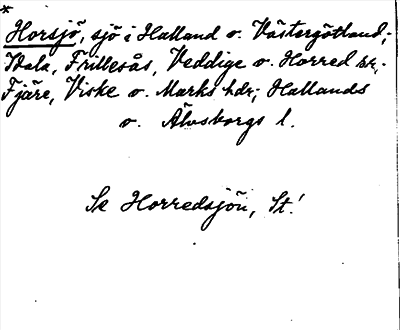 *
Horsjö, sjö i Halland o. Västergötland;
Idala, Frillesås, Veddige o. Horred sr;
Fjäre, Viske o. Marks hdr; Hallands
o. Älvsborgs l.
Se Horredsjön, St!